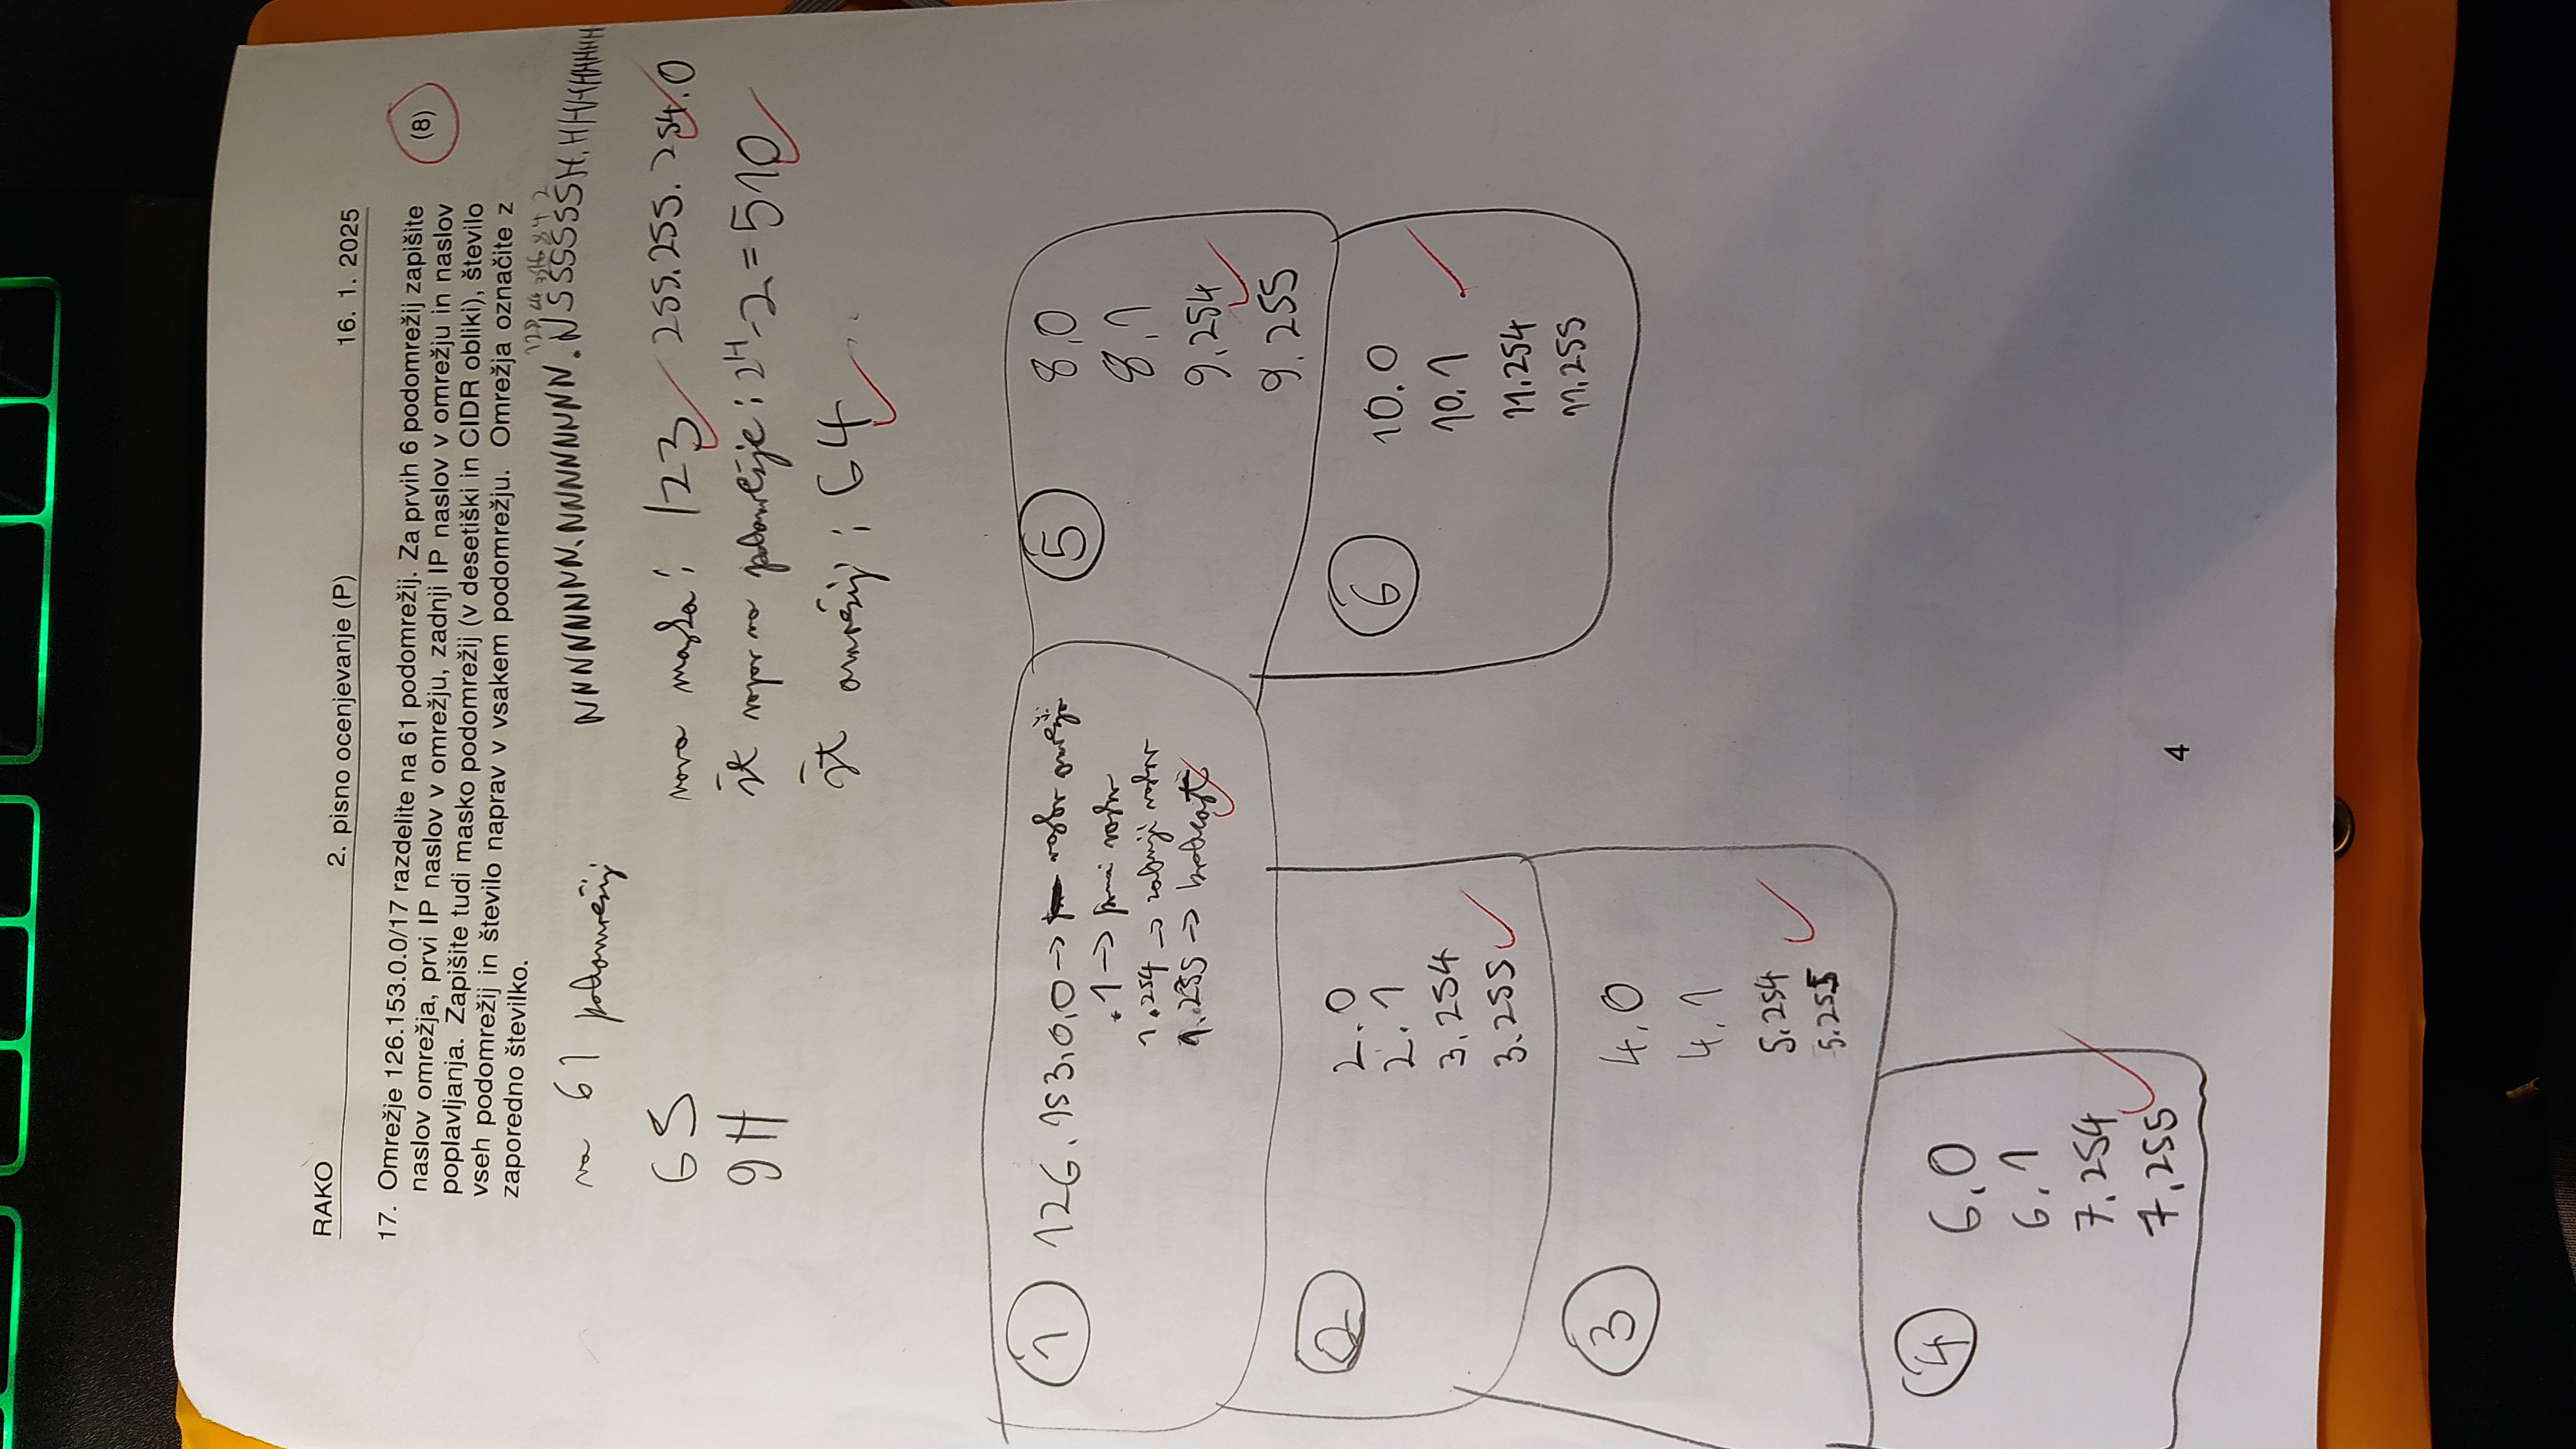 RAKO 2. pisno ocenjevanje (P) 16. 1. 2025
17. Omrežje 126.153.0.0/17 razdelite na 61 podomrežij. Za prvih 6 podomrežij zapišite
naslov omrežja, prvi IP naslov v omrežju, zadnji IP naslov v omrežju in naslov
poplavljanja. Zapišite tudi masko podomrežij (v desetiški in CIDR obliki), število
vseh podomrežij in število naprav v vsakem podomrežju. Omrežja označite z
zaporedno številko.
(8)
128 64 32 16 8 4 2
na 61 podomrežij
NNNNNNNN.NNNNNNNN.NSSSSSSH.HHHHHHHH
6S
nova maska: /23 255.255.254.0
9H
št napr na podomrežje: 2^H-2=510
št omrežij: 64
1 126.153.0.0 -> naslov omrežja
.1 -> prvi naslov
1.254 -> zadnji naslov
1.255 -> brodcast
2
2.0
2.1
3.254
3.255
3
4.0
4.1
5.254
5.255
4
6.0
6.1
7.254
7.255
5
8.0
8.1
9.254
9.255
6
10.0
10.1
11.254
11.255
4